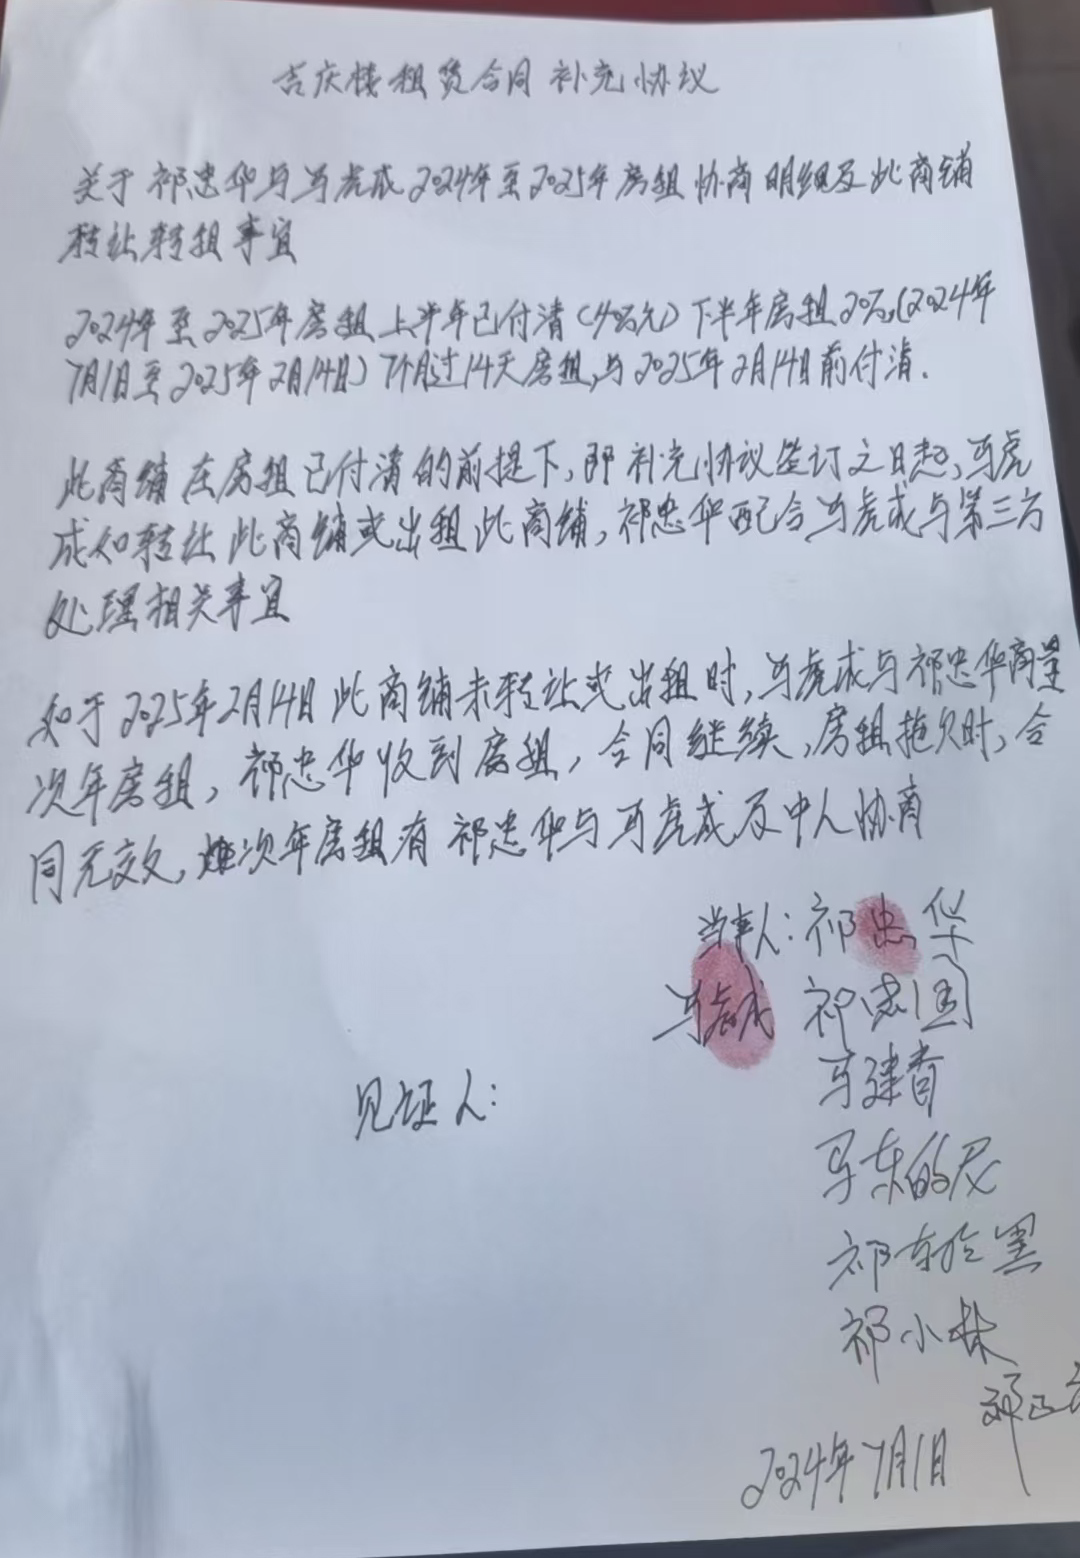 吉庆楼租赁合同补充协议
关于祁忠华与马虎成2024年至2025年房租协商明细及此商铺
转让转租事宜
2024年至2025年房租上半年已付清(4万元)下半年房租2万,(2024年
7月1日至2025年2月14日)7个月过14天房租,与2025年2月14日前付清.
此商铺在房租已付清的前提下,即补充协议签订之日起,马虎
成如转让此商铺或出租此商铺,祁忠华配合马虎成与第三方
处理相关事宜
如于2025年2月14日此商铺未转让或出租时,马虎成与祁忠华商量
次年房租,祁忠华收到房租,合同继续,房租拖欠时,合
同无效,次年房租有祁忠华与马虎成及中人协商
当事人:祁忠华
马虎成 祁忠国
马建香
见证人:
马东的尼
祁
祁小林
祁
2024年7月1日